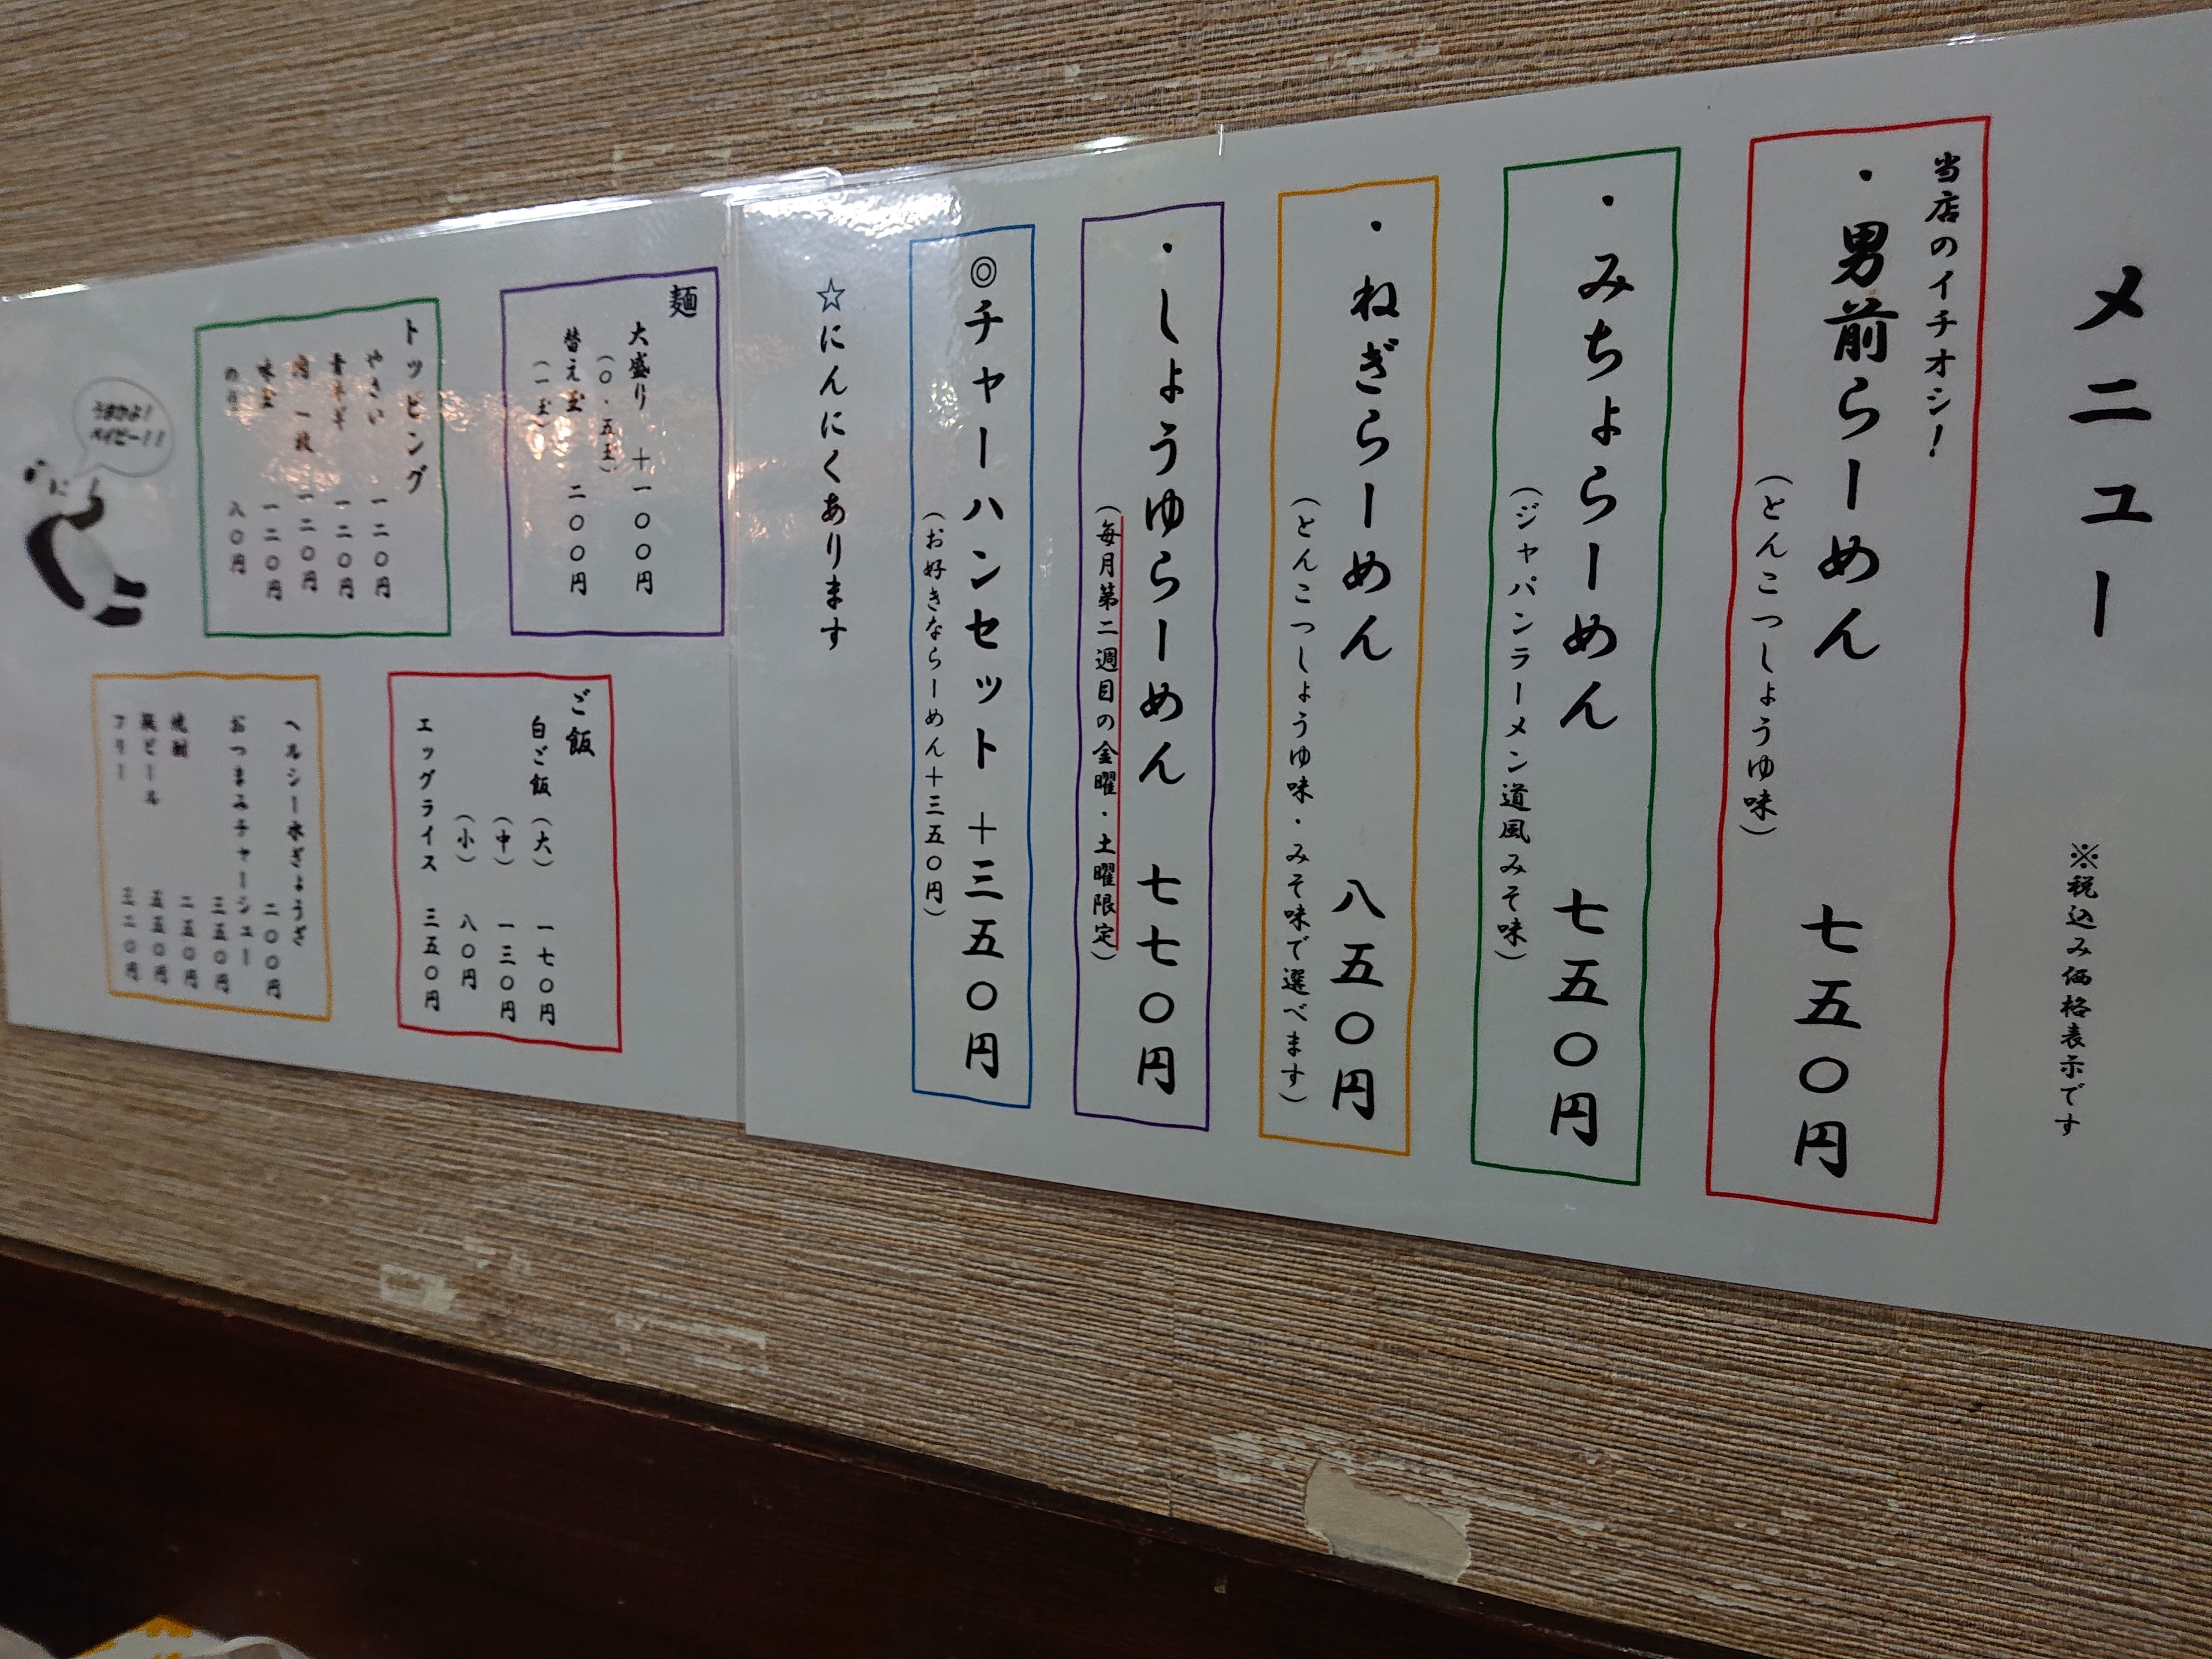 メニュー
※税込み価格表示です
当店のイチオシ！
・男前らーめん　七五〇円
（とんこつしょうゆ味）
・みちょらーめん　七五〇円
（ジャパンラーメン道風みそ味）
・ねぎらーめん　八五〇円
（とんこつしょうゆ味・みそ味で選べます）
・しょうゆらーめん　七七〇円
（毎月第二週目の金曜・土曜限定）
◎チャーハンセット＋三五〇円
（お好きならーめん＋三五〇円）
☆にんにくあります
麺
大盛り　＋一〇〇円
（〇・五玉）
替え玉　二〇〇円
（一玉）
トッピング
やさい　一二〇円
青ネギ　一二〇円
肉一枚　一二〇円
味玉　一二〇円
のり　八〇円
うまかよ！
ベイビー！！
ご飯
白ご飯（大）　一七〇円
（中）　一三〇円
（小）　八〇円
エッグライス　三五〇円
ヘルシー水ぎょうざ
二〇〇円
おつまみチャーシュー
三五〇円
焼酎　二五〇円
瓶ビール　五五〇円
フリー　三二〇円